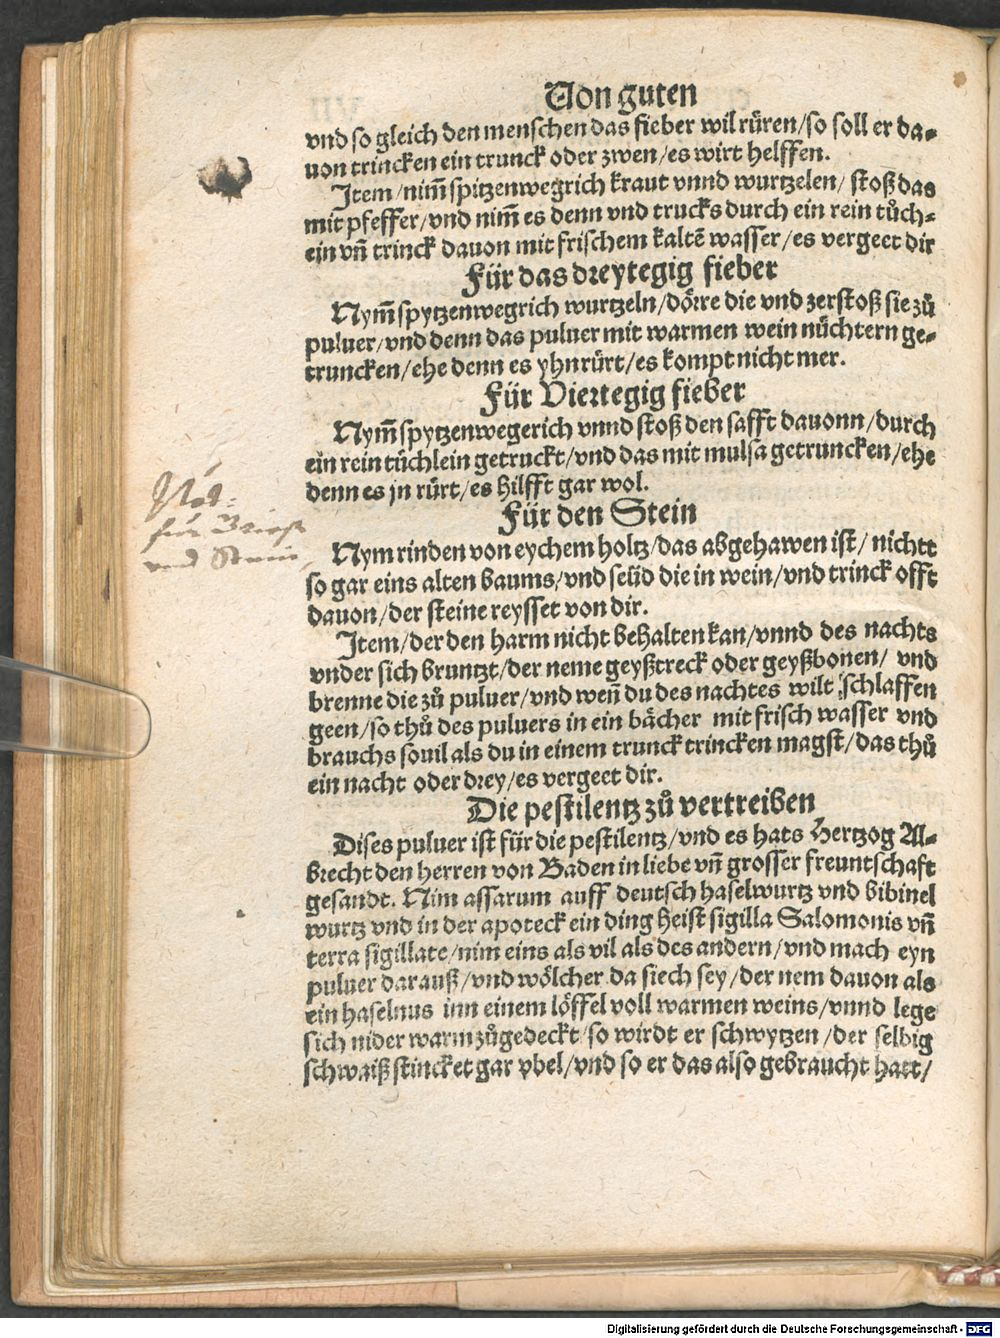 Von guten
vnd so gleich den menschen das fieber wil rüren/so soll er da⸗
uon trincken ein trunck oder zwen/es wirt helffen.
Item/nim̄ spitzenwegrich kraut vnnd wurtzelen/ stoß das
mit pfeffer/vnd nim̄ es denn vnd trucks durch ein rein tuͤch⸗
ein vn̄ trinck dauon mit frischem kaltē wasser/es vergeet dir
Für das dreytegig fieber
Nym̄ spytzenwegrich wurtzeln/dörre die vnd zerstoß sie zů
puluer/vnd denn das puluer mit warmen wein nüchtern ge⸗
truncken/ehe denn es yhn rürt/es kompt nicht mer.
Für Viertegig fieber
Nym̄ spytzenwegerich vnnd stoß den safft dauonn/durch
ein rein tüchlein getruckt/vnd das mit mulsa getruncken/ehe
denn es jn rürt/es hilfft gar wol.
Für den Stein
Not:
für
vnd Stein
Nym rinden von eychem holtz/das abgehawen ist/ nichtt
so gar eins alten baums/vnd seüd die in wein/vnd trinck offt
dauon/der steine reysset von dir.
Item/der den harm nicht behalten kan/vnnd des nachts
vnder sich bruntzt/der neme geyßtreck oder geyßbonen/ vnd
brenne die zů puluer/vnd wen̄ du des nachtes wilt schlaffen
geen/so thů des puluers in ein bächer mit frisch wasser vnd
brauchs souil als du in einem trunck trincken magst/das thů
ein nacht oder drey/es vergeet dir.
Die pestilentz zů vertreiben
Dises puluer ist für die pestilentz/vnd es hats Hertzog Al⸗
brecht den herren von Baden in liebe vn̄ grosser freuntschaft
gesandt. Nim assarum auff deutsch haselwurtz vnd bibinel
wurtz vnd in der apoteck ein ding heist sigilla Salomonis vn̄
terra sigillate/nim eins als vil als des andern/vnd mach eyn
puluer darauß/vnd wölcher da siech sey/der nem dauon als
ein haselnus inn einem löffel voll warmen weins/vnnd lege
sich nider warm zůgedeckt/so wirdt er schwytzen/der selbig
schwaiß stincket gar vbel/vnd so er das also gebraucht hatt/
Digitalisierung gefördert durch die Deutsche Forschungsgemeinschaft - DFG